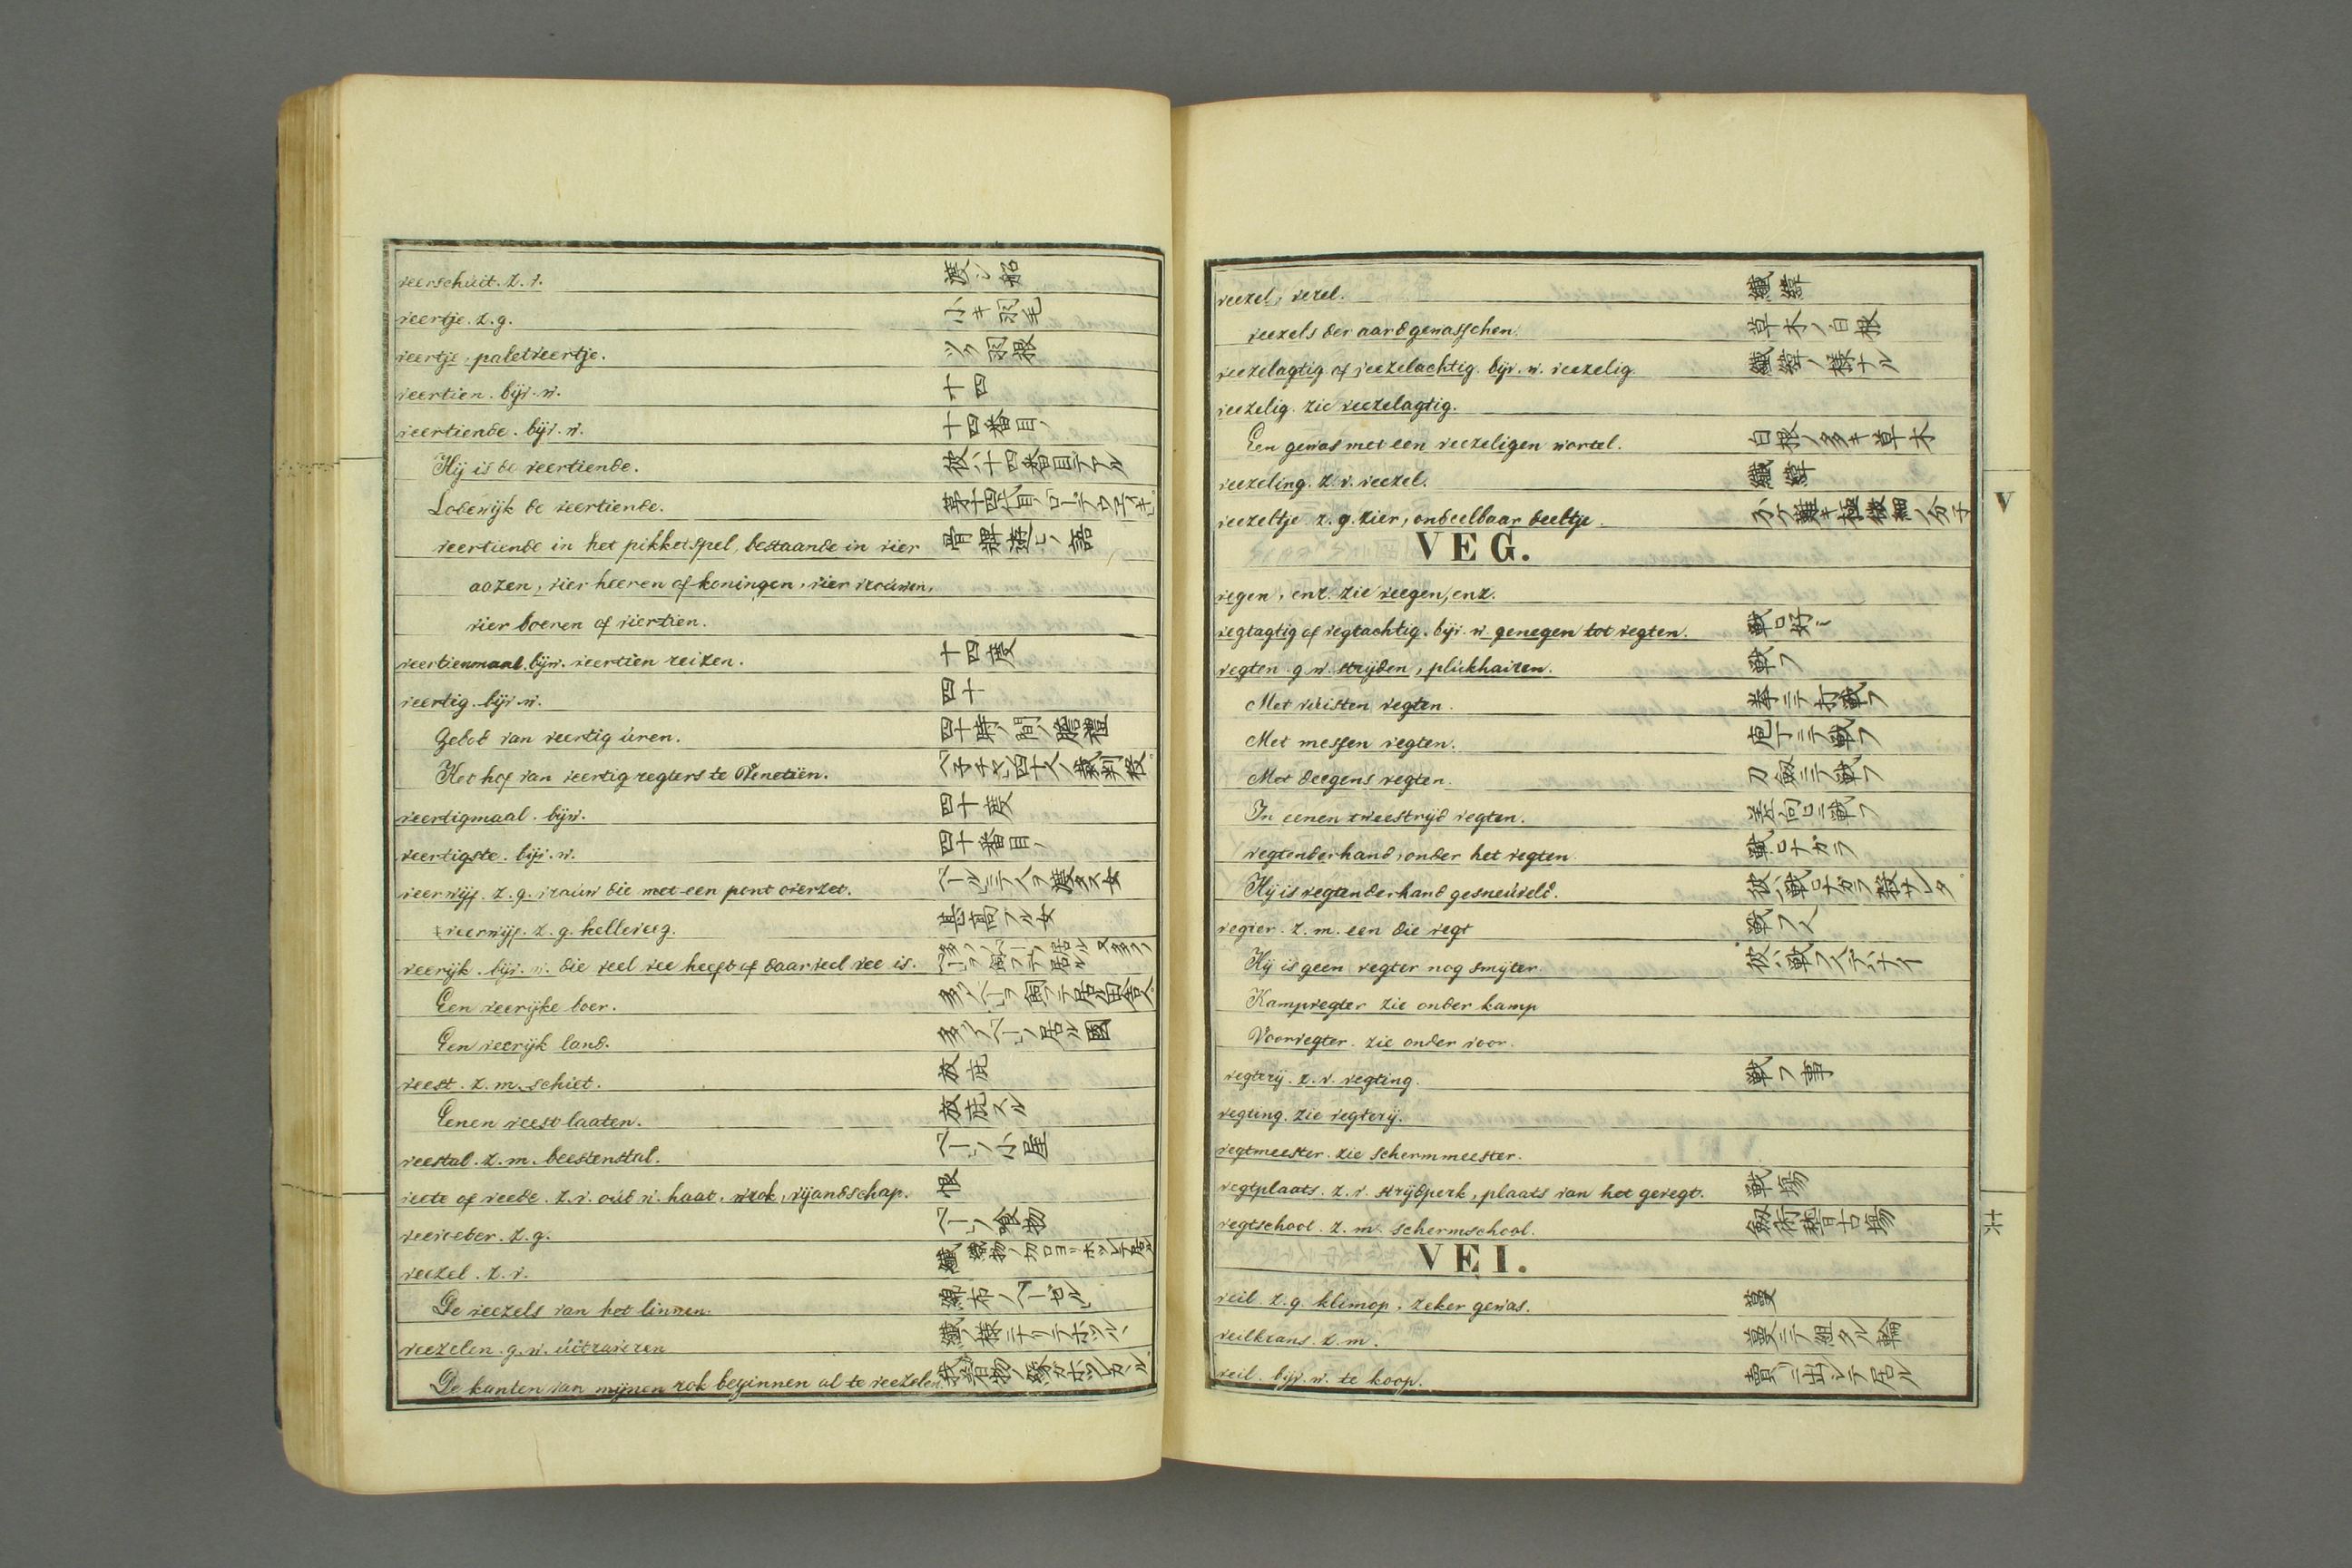 veerschuit. z. v. 渡シ船
veertje. z. g. 小キ羽毛
veertje, paletveertje. ツク羽根
veertien. bijv. w. 十四
veertiende. bijv. w. 十四番目ノ
Hij is de veertiende. 彼ハ十四番目デアル
Lodewijk de veertiende. 第十四代目ノローデウエイキ
veertiende in het pikketspel, bestaande in vier 骨牌遊ヒノ語
aazen, vier heeren of koningen, vier vrouwen,
vier boeren of viertien.
veertienmaal. bijw. veertien reizen. 十四度
veertig. bijv. w. 四十
Gebod van veertig uren. 四十時ノ間ノ
Het hof van veertig regters te Venetiën. 四十人ノ裁判役
veertigmaal. bijw. 四十度
veertigste. bijv. w. 四十番目ノ
veerwijf. z. g. vrouw die met een pont overzet. 人ヲ渡ス女
veerwijf. z. g. helleveeg. 甚高フル女
veerijk. bijv. w. die veel vee heeft of daar veel vee is.
Een veerijke boer. 多クノベーヲ飼フテ居ル田舎人
Een veerijk land. 多クノベーノ居ル國
veest. z. m. schiet. 放庇
Eenen veest laaten. 放庇スル
veestal. z. m. beestenstal. ベーノ小屋
veete of veede. z. v. oud w. haat, wrok, vijandschap. 恨
veevoeder. z. g. ベーノ喰物
veezel. z. v. 纎 織物ノ切口ヨリホツレテ居ル
De veezels van het linnen. 綿布ノベーゼル
veezelen. g. w. uitraveren 纎ノ様ニナリテホツル丶
De kanten van mijnen rok beginnen al te veezelen. 我着物ノ縁ガホツレカヽル
veezel, vezel. 纎緯
veezels der aardgewasschen. 草木ノ白根
veezelagtig of veezelachtig. bijv. w. veezelig. 纎緯ノ様ナル
veezelig. zie veezelagtig.
Een gewas met een veezeligen wortel. 白根ノ多キ草木
veezeling. z. v. veezel. 纎緯
veezeltje. z. g. zier, ondeelbaar deeltje. 分ケ難キ極微細ノ分子
V
VEG.
vegen, enz. zie veegen, enz.
vegtagtig of vegtachtig. bijv. w. genegen tot vegten. 戦ヒ好ノ
vegten. g. w. strijden, plukhairen. 戦フ
Met vuisten vegten. 拳ニテ打戦フ
Met messen vegten. 庖丁ニテ戦フ
Met deegens vegten. 刀劔ニテ戦フ
In eenen tweestrijd vegten. 差向ヒニ戦フ
vegtenderhand, onder het vegten 戦ヒナガラ
Hij is vegtenderhand gesneuveld. 彼ハ戦ヒナガラ殺サレタ
vegter. z. m. een die vegt 戦フ人
Hij is geen vegter nog smijter. 彼ハ戦フ人デハナイ
Kampvegter zie onder kamp
Voorvegter. zie onder voor.
vegterij. z. v. vegting. 戦フ事
vegting. zie vegterij.
vegtmeester. zie schermmeester.
vegtplaats. z. v. strijdperk, plaats van het gevegt. 戦場
vegtschool. z. m. schermschool. 劔術稽古場
十六
VEI.
veil. z. g. klimop, zeker gewas. 蔓
veilkrans. z. m. 蔓ニテ組タル輪
veil. bijv. w. te koop. 賣ニ出シテ居ル